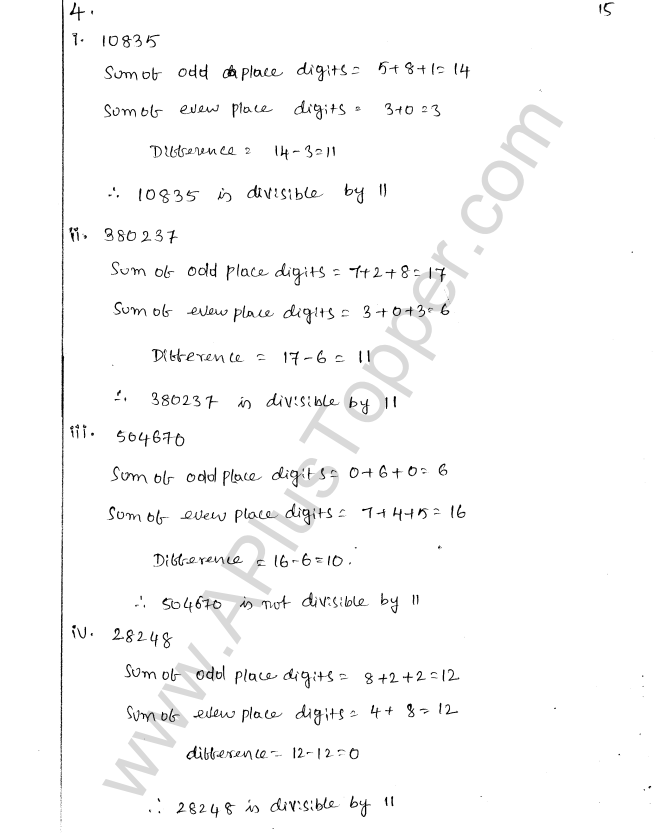 4.
15
i. 10835
Sum of odd place digits = 5+8+1=14
Sum of even place digits = 3+0=3
Difference = 14-3=11
∴ 10835 is divisible by 11
ii. 380237
Sum of odd place digits = 7+2+8=17
Sum of even place digits = 3+0+3=6
Difference = 17-6=11
∴ 380237 is divisible by 11
iii. 504670
Sum of odd place digits = 0+6+0=6
Sum of even place digits = 7+4+5=16
Difference = 16-6=10.
∴ 504670 is not divisible by 11
iv. 28248
Sum of odd place digits = 8+2+2=12
Sum of even place digits = 4+8=12
difference = 12-12=0
∴ 28248 is divisible by 11
www.APlusTopper.com